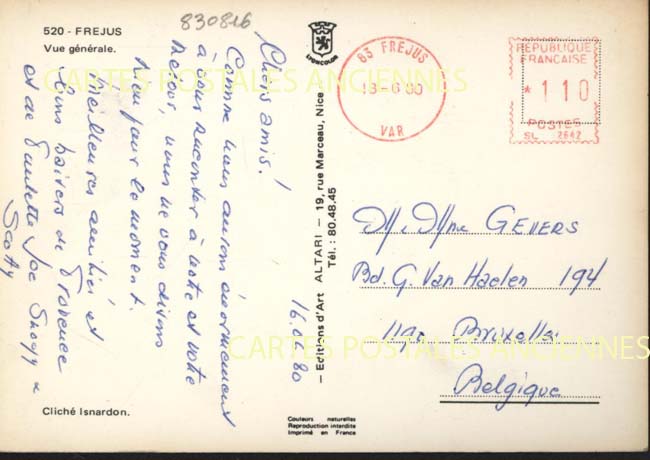 830816
520 - FREJUS
Vue générale.
LYONCOLOR
83 FREJUS
18-6 80
VAR
REPUBLIQUE
FRANCAISE
* 110
POSTES
SL 2642
CARTES POSTALES ANCIENNES
16.6.80
Chers amis!
Comme nous aurons énormément
à vous raconter à notre et votre
retour, nous ne vous disons
rien pour le moment.
Meilleures amitiés et
bons baisers de Provence
et de Paulette Joe &
Scoty
— Editions d'Art ALTARI — 19, rue Marceau, Nice —
Tél. : 80.48.45
M. Mme GEVERS
Bd. G. Van Haelen 194
1190 Bruxelles
Belgique
CARTES POSTALES ANCIENNES
Cliché Isnardon.
Couleurs naturelles
Reproduction interdite
Imprimé en France